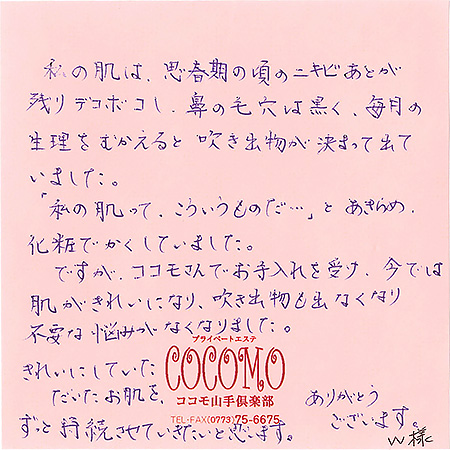 私の肌は、思春期の頃のニキビあとが
残りデコボコし、鼻の毛穴は黒く、毎月の
生理をむかえると吹き出物が決まって出て
いました。
「私の肌って、こういうものだ…」とあきらめ、
化粧でかくしていました。
ですが、ココモさんでお手入れを受け、今では
肌がきれいになり、吹き出物も出なくなり
不要な悩みがなくなりました。
プライベートエステ
COCOMO
ココモ山手倶楽部
TEL・FAX(0773)75-6675
きれいにしていた
だいたお肌を、
ずっと持続させていきたいと思います。
ありがとう
ございます。
W様